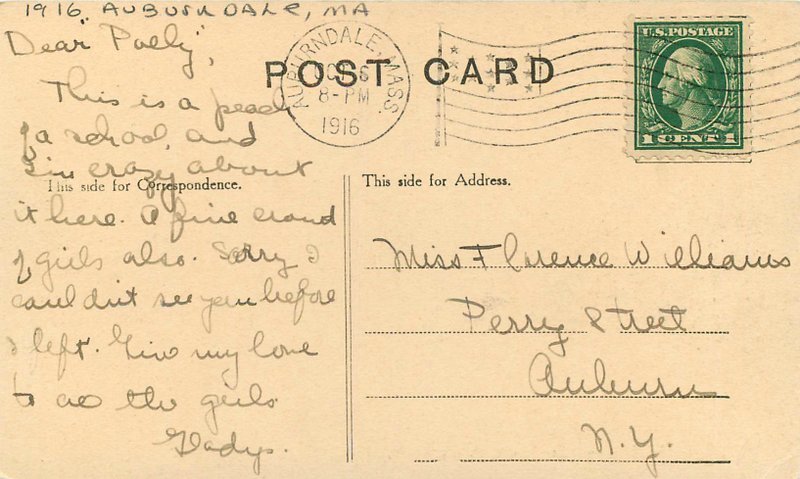 1916 AUBURNDALE, MA
Dear "Polly",
This is a peach
of a school, and
I'm crazy about
it here. A fine crowd
of girls also. Sorry I
couldn't see you before
I left. Give my love
to all the girls.
Gladys.
POST CARD
AUBURNDALE, MASS.
8-PM
1916
U.S. POSTAGE
1 CENT 1
This side for Correspondence.
This side for Address.
Miss Florence Williams
Perry Street
Auburn
N.Y.